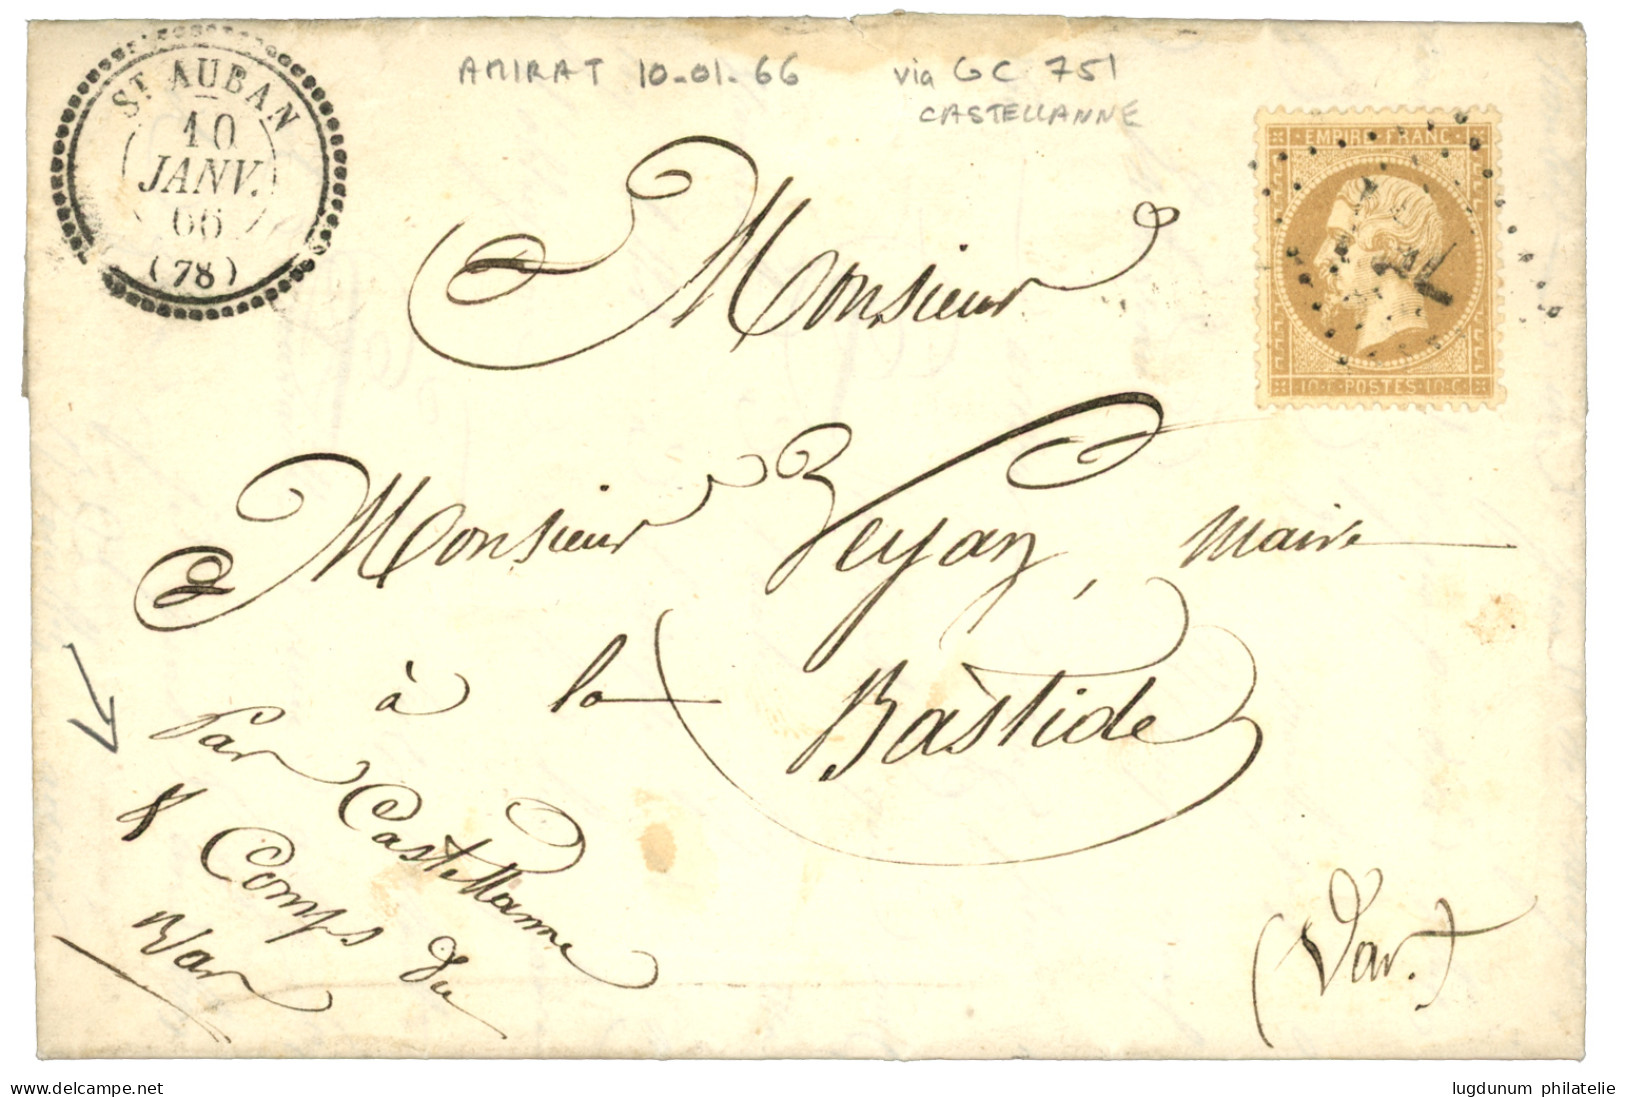 ST AUBAN
10
JANV.
66
(78)
AMIRAT 10-01-66 via GC 751
CASTELLANNE
EMPIRE FRANC
10 C POSTES 10 C
Monsieur
Monsieur Veyan, maire
à la Bastide
Par Castellanne
& Comps du
Var
(Var.)
delcampe.net
lugdunum philatelie